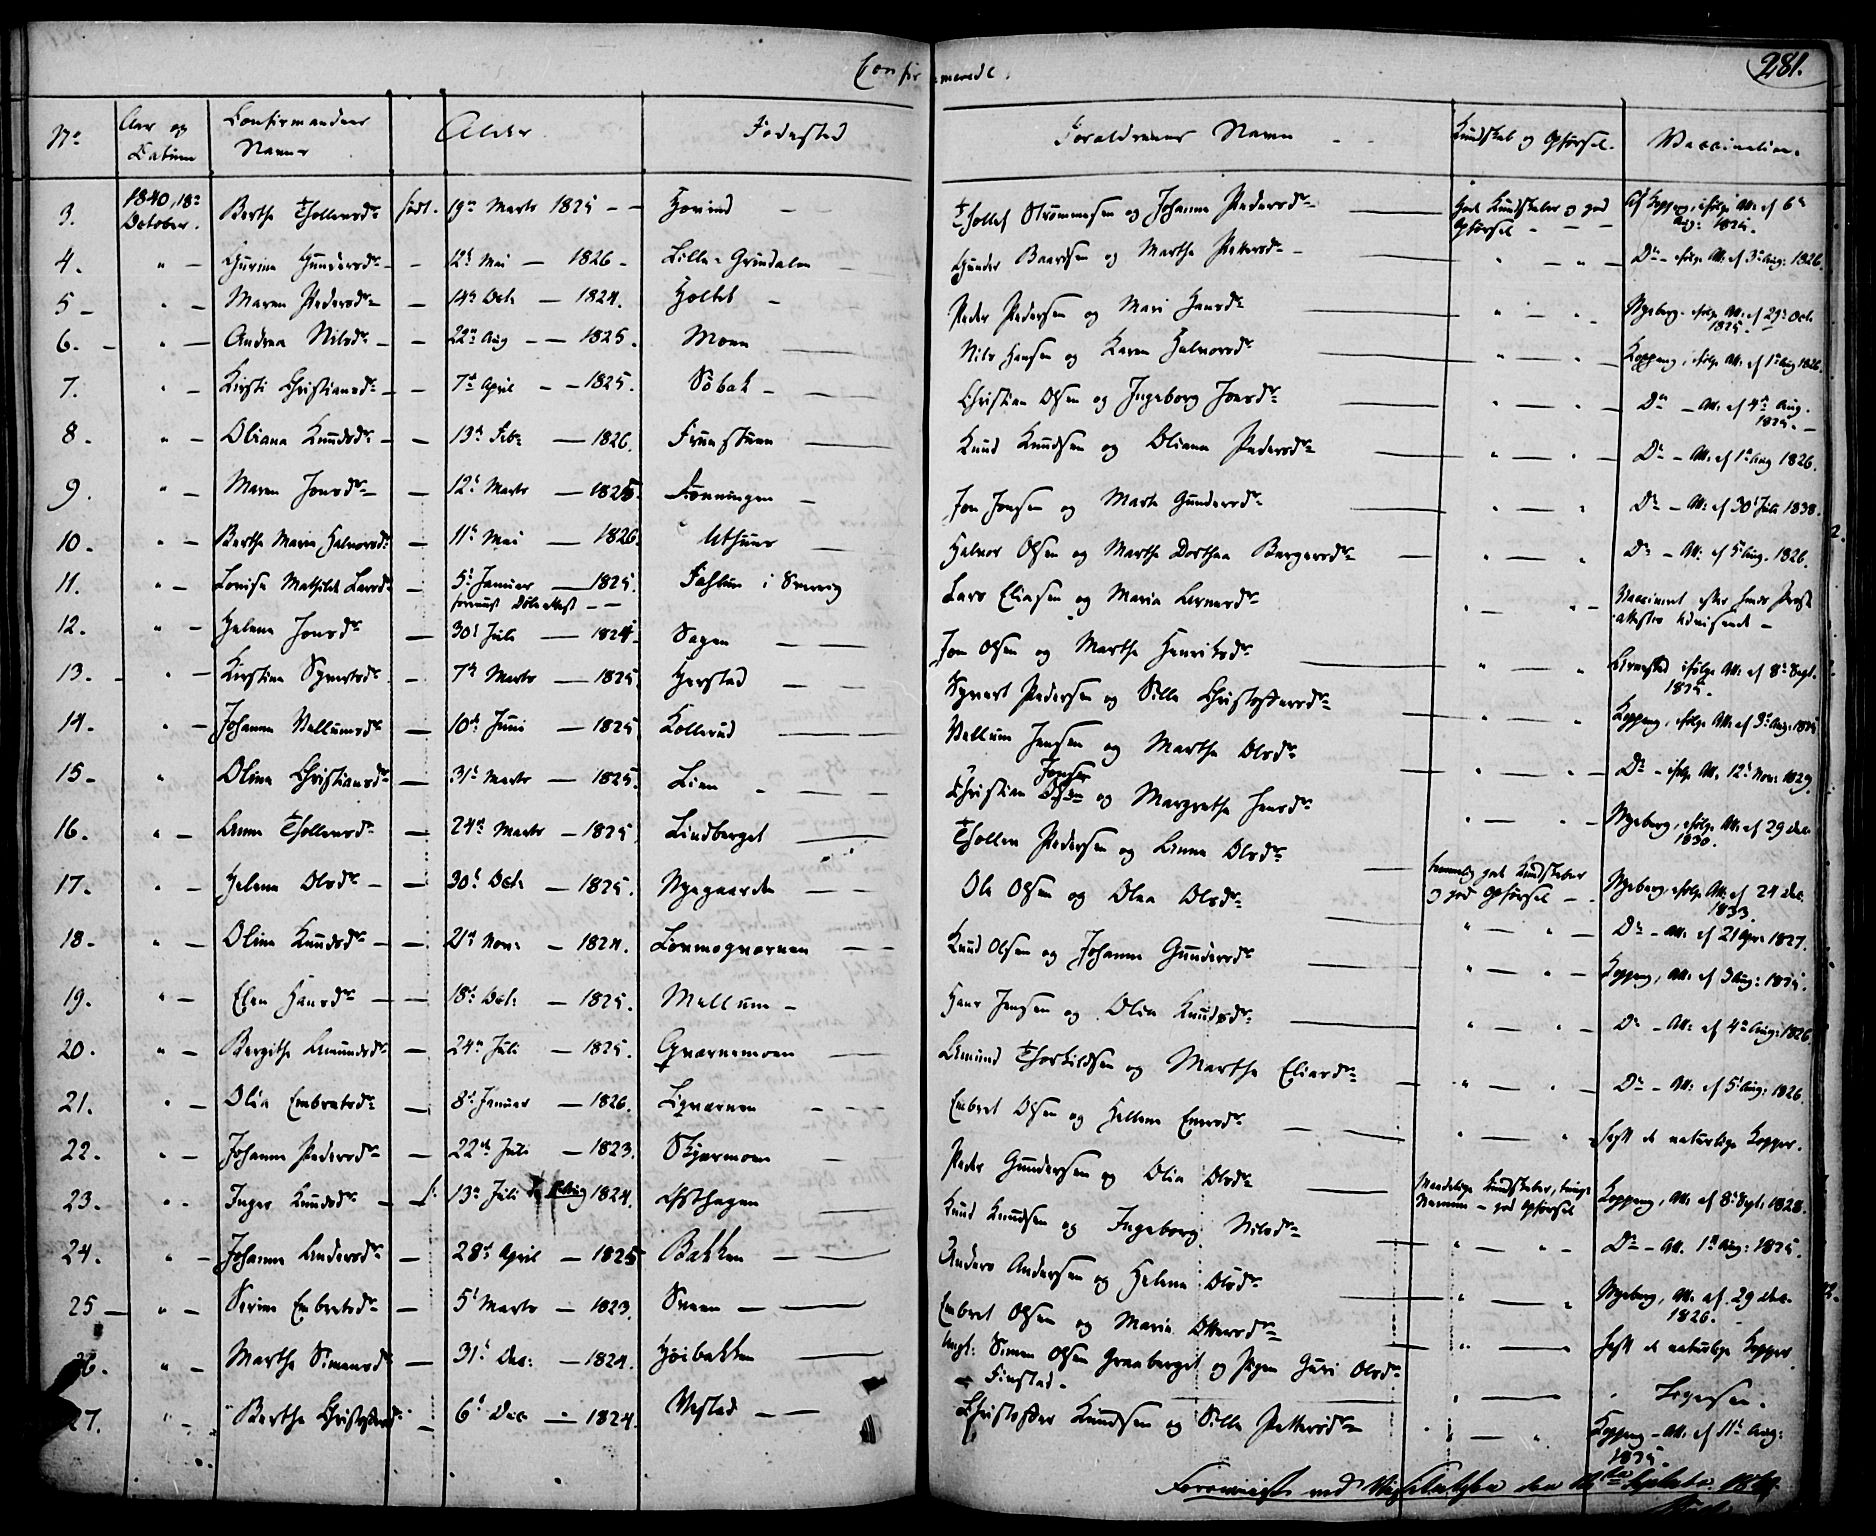 Confirmerede.
281.
No Aar og Datum Confirmandens Navne Alder Fødested Forældrenes Navne Kundskab og Opførsel. Vaccination.
3. 1840, 18de October. Berthe Thollevsdr født. 19de Marts 1825 Hovind Thollef Strømmesen og Johanne Pedersdr gode Kundskaber og god Opførsel Af Koppang, ifølge Att. af 6te Aug: 1825.
4. " Gurine Gundersdr 12te Mai 1826 Lille-Grindalen Gunder Baardsen og Marthe Pettersdr " " Do ifølge Att. af 3die Aug: 1826.
5 " Maren Pedersdr 14de Octr 1824. Holtet Peder Pedersen og Mari Hansdr " " Nyeberg, ifølge Att. af 29de Octr 1825.
6. " Andrea Nilsdr 22de Aug 1825. Moen Nils Hansen og Karen Halvorsdr " " Koppang, ifølge Att. af 1ste Aug 1826.
7. " Kirsti Christiansdr 7de April 1825. Søbak Christian Olsen og Ingeborg Jonsdr " " Do Att. af 4de Aug. 1825.
8. " Oliana Knudsdr 13de Febr 1826. Fruestuen Knud Knudsen og Oliana Pedersdr " " Do Att. af 1ste Aug 1826.
9. " Maren Jonsdr 12te Marts 1825. Fonningen Jon Jonsen og Marte Gundersdr " " Do Att. af 30te Juli 1838.
10. " Berthe Marie Halvorsdr 11te Mai 1826. Uthuus Halvor Olsen og Marthe Dorthea Bergersdr " " Do Att. af 5te Aug. 1826.
11. " Lovise Mathilde Larsdr 5te Januar 1825. Fahlun i Sverrig Lars Eliasen og Maria " " Vaccineret efter hendes Præste attestes Udvisende
12. " Helene Jonsdr 30te Juli 1824. Sagen Jon Olsen og Marthe Henriksdr " "
13. " Kirstine Syvertsdr 7de Marts 1825. Harstad Syvert Pedersen og Sille Christoffersdr ifølge Att. af 8de Sept. 1825.
14. " Johanne Vellumsdr 10de Juni 1825 Kollerud Vellum Jensen og Marthe Olsdr " " Koppang, ifølge Att. af 3die Aug. 1825
15. " Oline Christiansdr 31te Marts 1825. Lien Christian Jonsen og Margrethe Jensdr " " Do ifølge Att. 12te Nov: 1829.
16. " Anne Thollevsdr 24de Marts 1825 Lindberget Thollev Pedersen og Anne Olsdr " " Nyeberg, ifølge Att. af 29 Dec. 1830.
17. " Helene Olsdr 30te Octr 1825. Nygaarden Ole Olsen og Olea Olsdr temmelig gode Kundskaber og god Opførsel Nyeberg, ifølge Att. af 24 Dec. 1833.
18. " Oline Knudsdr 21de Nov: 1824. Lonmoqvernen Knud Olsen og Johanne Gundersdr " " Do Att. af 21 Apr. 1827.
19. " Elen Hansdr 18de Octr 1825. Mellum Hans Jensen og Olia Knudsdr " " Koppang, Att. af 3 Aug: 1825.
20. " Bergithe Amundsdr 24de Juli 1825. Qværnemoen Amund Thorkildsen og Marthe Eliasdr " " Do Att. af 4de Aug: 1826.
21. " Olia Embretsdr 8de Januar 1826. Liqværnen Embret Olsen og Hellene Enersdr " " Do Att. af 5te Aug: 1826.
22. " Johanne Pedersdr 22de Juli 1823. Skjærmoen Peder Gundersen og Olia Olsdr " " haft de naturlige Kopper.
23. " Inger Knudsdr f. 13de Juli 1824. Østhagen Knud Knudsen og Ingeborg Nilsdr Maadelige Kundskaber, svag Nemme - god Opførsel Koppang, Att. af 8de Sept. 1828.
24. " Johanne Andersdr 28de April 1825 Bakken Anders Andersen og Helene Olsdr " " Do Att. 1ste Aug: 1825.
25 " Serine Embretsdr 5te Marts 1823. Sveen Embret Olsen og Maria Olsdr " " Nyeberg, Att. af 29 Dec. 1826.
26. " Marthe Simensdr 31te Dec: 1824. Høibakken Ungk: Simen Olsen Graaberget og Pigen Guri Olsdr Finstad. " haft de naturlige Kopper
27. " Berthe Christoffersdr 6te Dec 1824. Vestad Christoffer Knudsen og Sille Pettersdr " " Koppang Att. af 11te Aug: 1825.